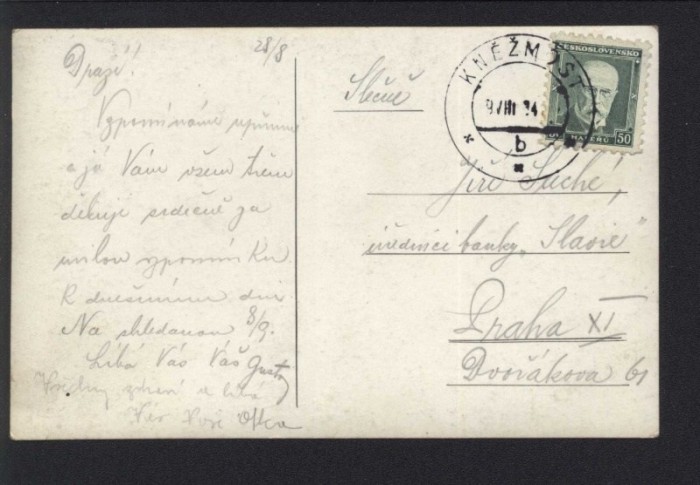 28/8
Drazí!
Vzpomínáme upřímně
a já Vám všem třem
děkuje srdečně za
milou vzpomínku
K dnešnímu dni
Na shledanou 8/9.
Líbá Vás Váš
zdraví a líbá
Vás Vaše
KNĚŽMOST
9/VIII 34
b
ČESKOSLOVENSKO
50
HALÉŘŮ
Slečně
Jiř. Suché,
úřednici banky „Slavie“
Praha XI
Dvořákova 61